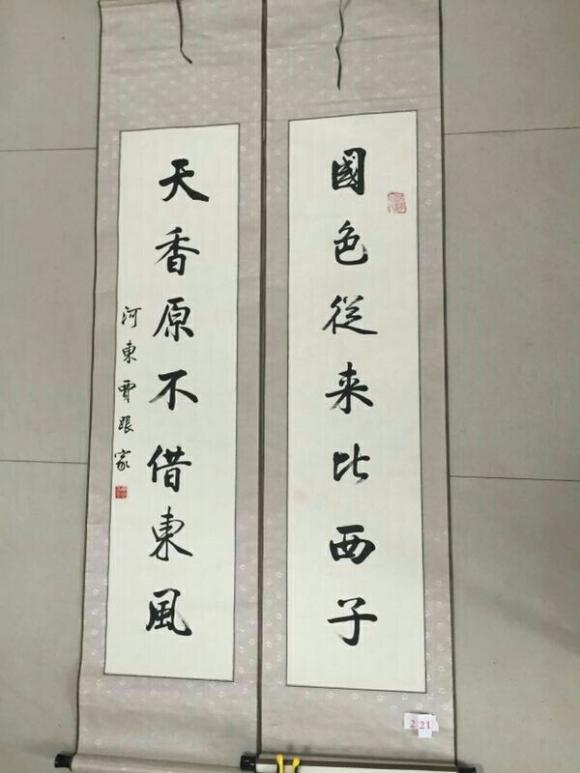 國色從来比西子
天香原不借東風
河東賈張家
221